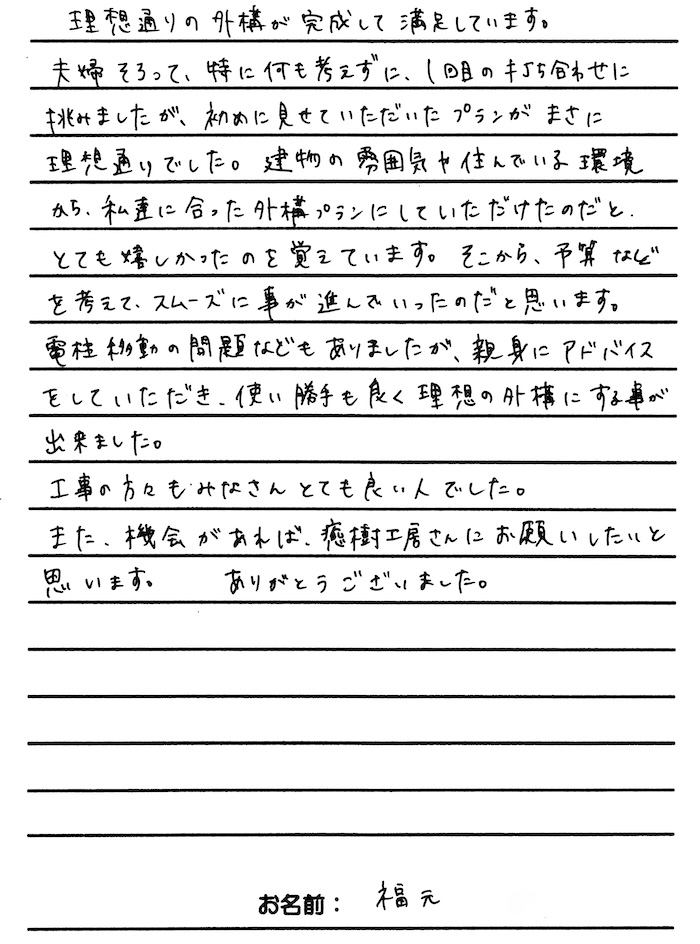 理想通りの外構が完成して満足しています。
夫婦そろって、特に何も考えずに、1回目の打ち合わせに
挑みましたが、初めに見せていただいたプランがまさに
理想通りでした。建物の雰囲気や住んでいる環境
から、私達に合った外構プランにしていただけたのだと、
とても嬉しかったのを覚えています。そこから、予算など
を考えて、スムーズに事が進んでいったのだと思います。
電柱移動の問題などもありましたが、親身にアドバイス
をしていただき、使い勝手も良く理想の外構にする事が
出来ました。
工事の方々もみなさんとても良い人でした。
また、機会があれば、癒樹工居さんにお願いしたいと
思います。 ありがとうございました。
お名前： 福元